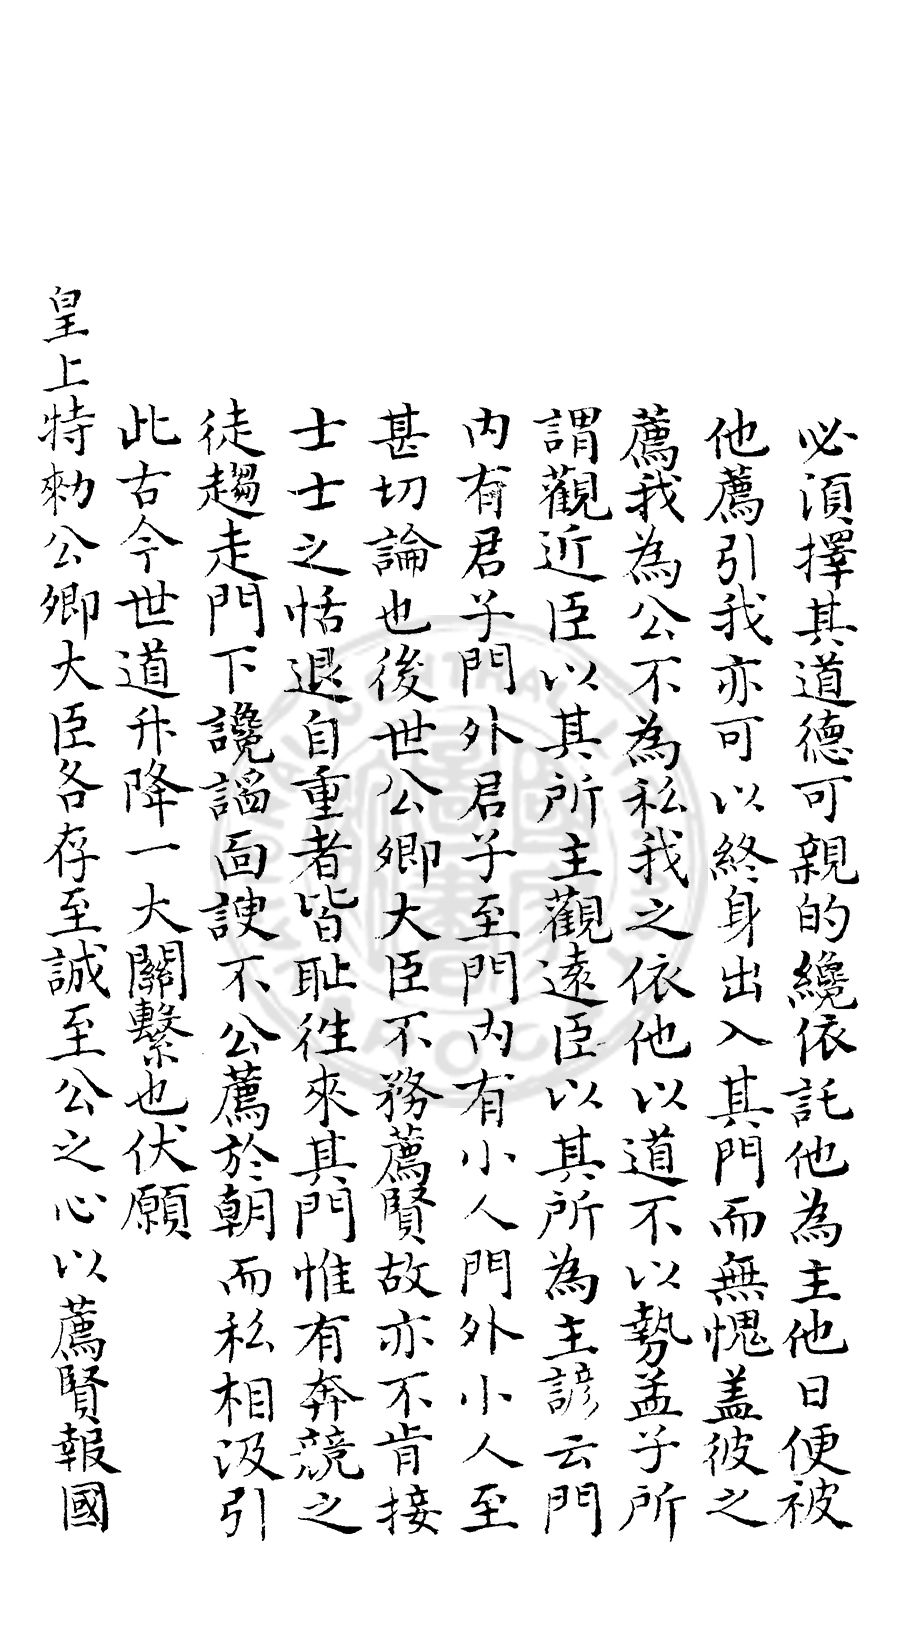 必須擇其道德可親的纔依託他為主他日便被
他薦引我亦可以終身出入其門而無愧蓋彼之
薦我為公不為私我之依他以道不以勢孟子所
謂觀近臣以其所主觀遠臣以其所為主諺云門
內有君子門外君子至門內有小人門外小人至
甚切論也後世公卿大臣不務薦賢故亦不肯接
士士之恬退自重者皆恥徃來其門惟有奔競之
徒趨走門下讒謟面諛不公薦於朝而私相汲引
此古今世道升降一大關繫也伏願
皇上特勑公卿大臣各存至誠至公之心以薦賢報國